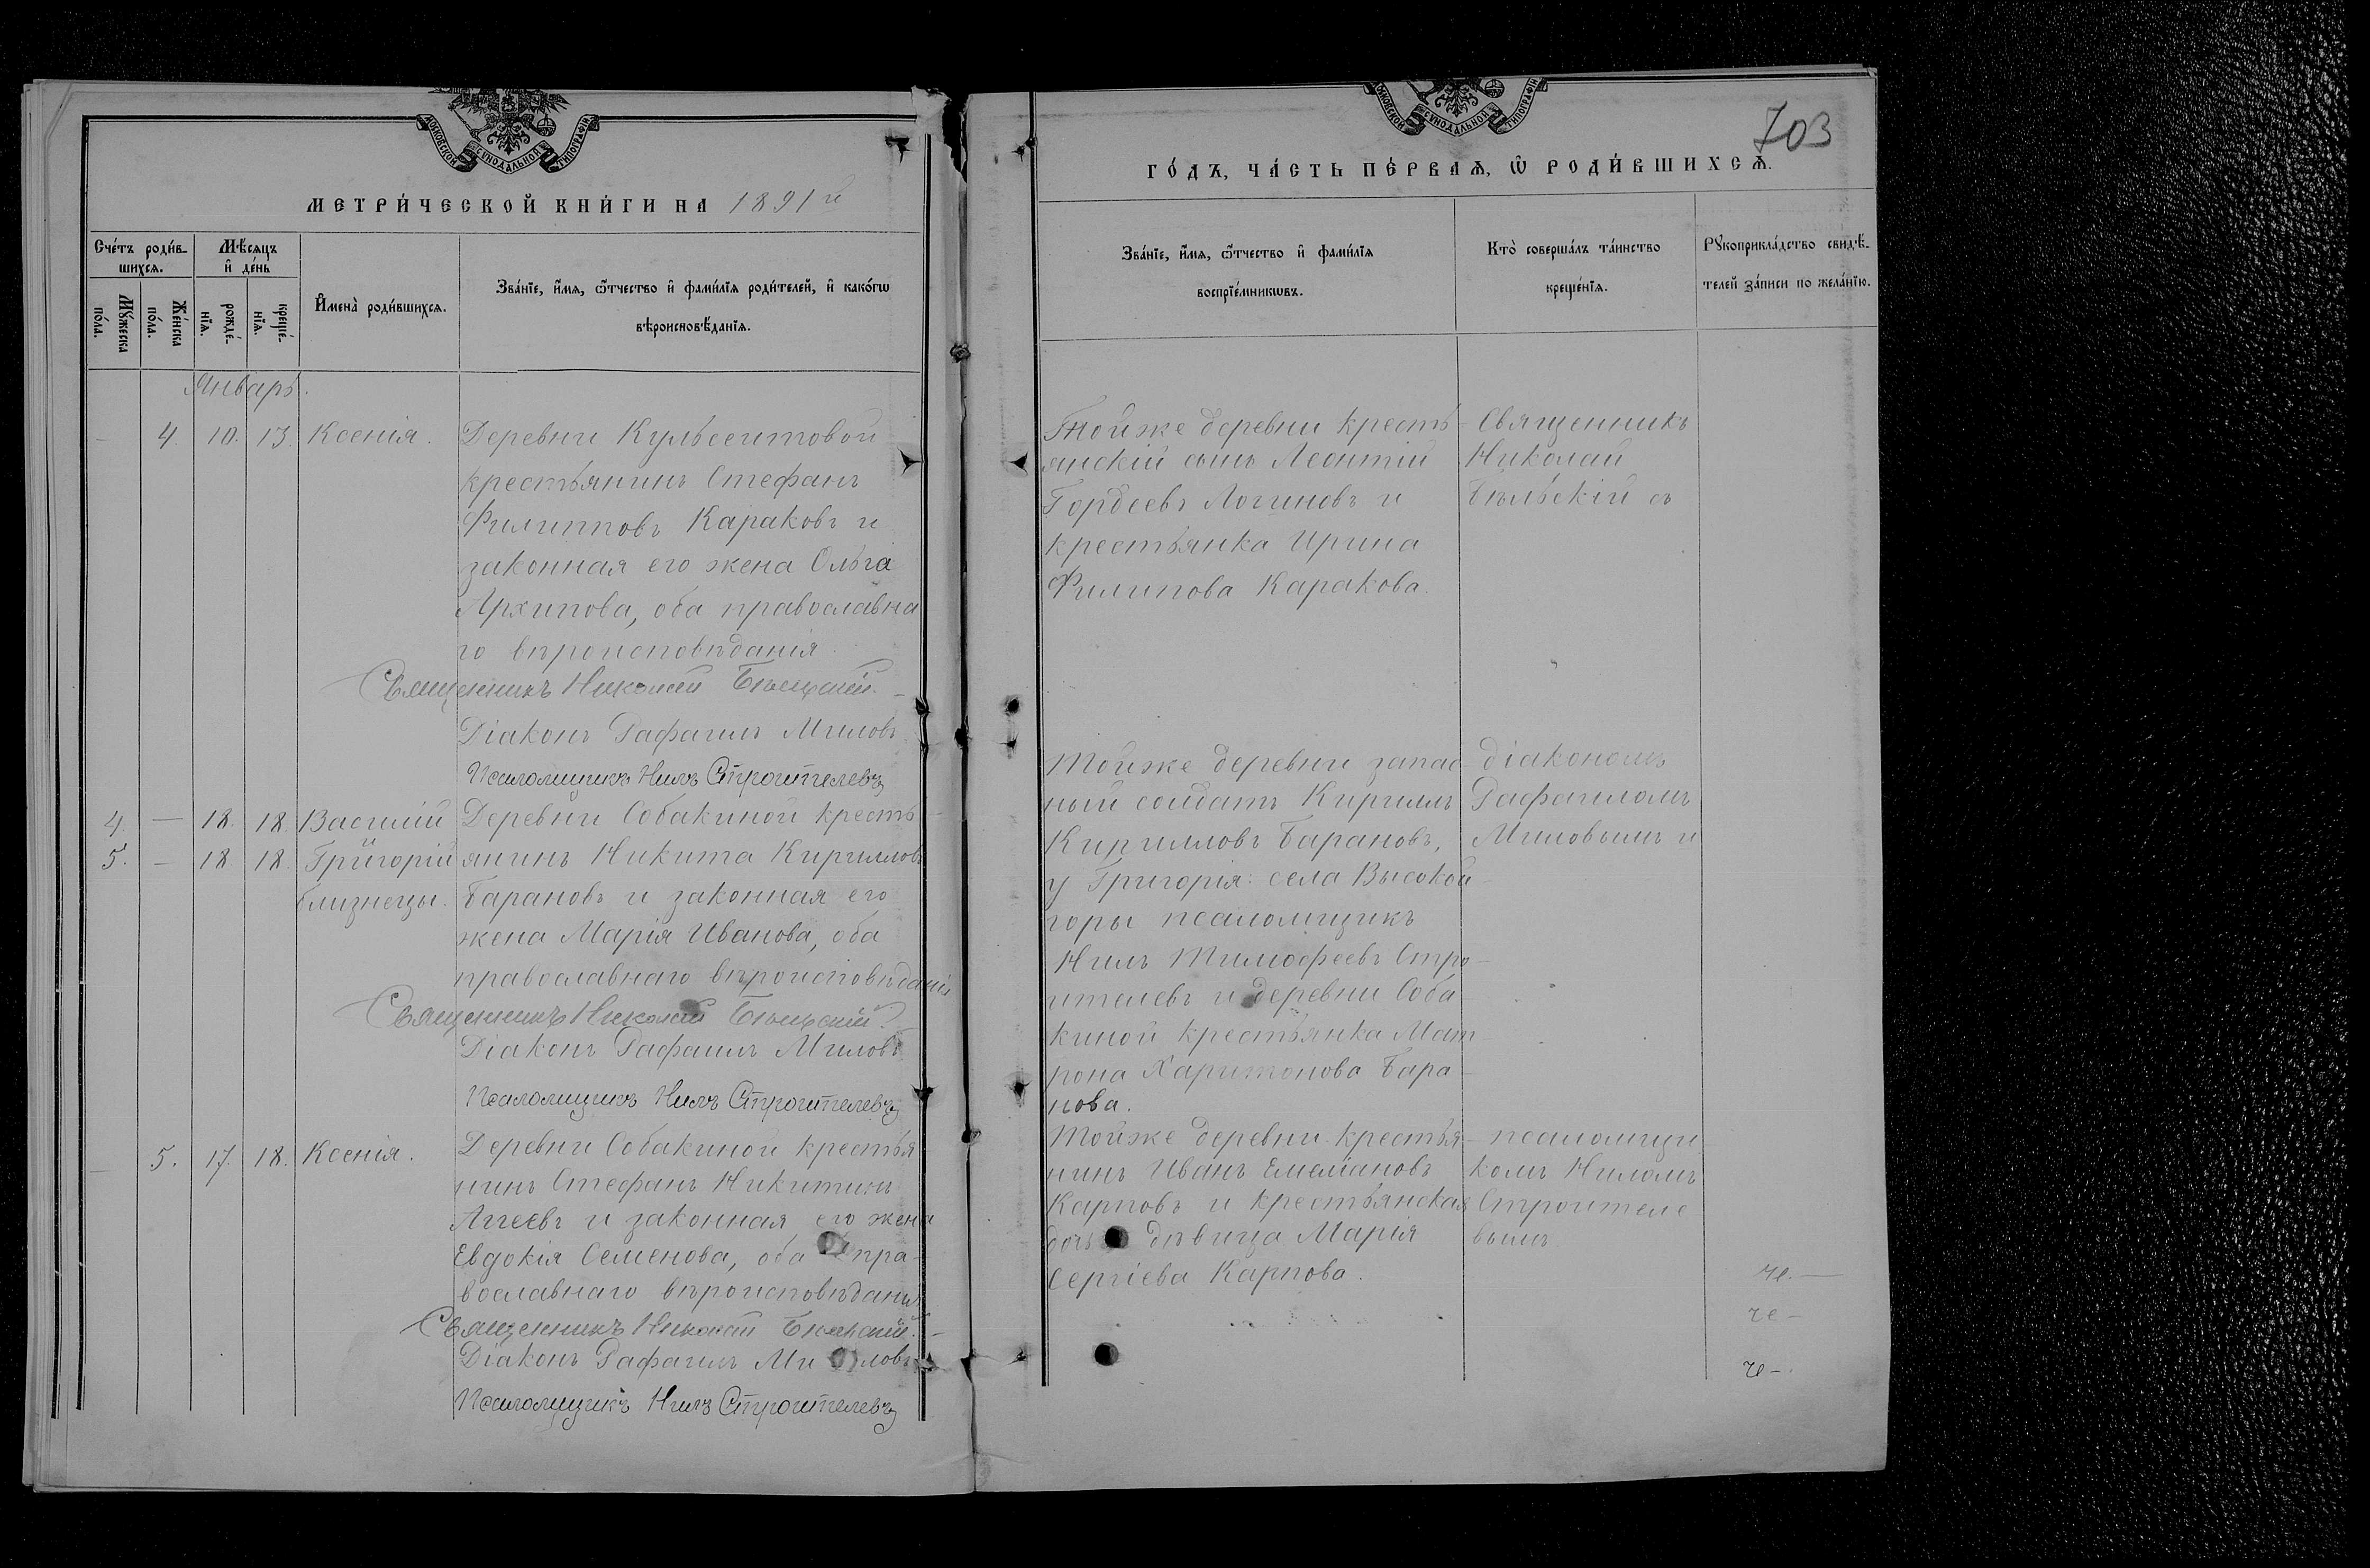 МОСКОВСКОЙ СѴНОДАЛЬНОЙ ТИПОГРАФІИ
МЕТРИ́ЧЕСКОЙ КНИ́ГИ НА 1891 й
Сче́тъ роди́в-
шихсѧ.
Мѣ́сѧцъ
и҆ де́нь
Мꙋ́жеска
по́ла.
Же́нска
по́ла.
рожде́-
нїѧ.
креще́-
нїѧ.
И҆мена̀ роди́вшихсѧ.
Зва́нїе, и҆́мѧ, ѻ҆́тчество и҆ фами́лїѧ роди́телей, и҆ како́гѡ
вѣроисповѣ́данїѧ.
Январь.
— 4. 10. 13. Ксенія.
Деревни Кульсеитовой
крестьянинъ Стефанъ
Филипповъ Караковъ и
законная его жена Ольга
Архипова, оба православна
го вѣроисповѣданія
Священникъ Николай Бѣльскій. —
Діаконъ Рафаилъ Миловъ
Псаломщикъ Нилъ Строителевъ
4. — 18. 18. Василій
и
5. — 18. 18. Григорій
близнецы.
Деревни Собакиной кресть
янинъ Никита Кирилловъ
Барановъ и законная его
жена Марія Иванова, оба
православнаго вѣроисповѣданія
Священникъ Николай Бѣльскій.
Діаконъ Рафаилъ Миловъ
Псаломщикъ Нилъ Строителевъ
— 5. 17. 18. Ксенія.
Деревни Собакиной крестья
нинъ Стефанъ Никитинъ
Аггеевъ и законная его жена
Евдокія Семенова, оба пра-
вославнаго вѣроисповѣданія
Священникъ Николай Бѣльскій. —
Діаконъ Рафаилъ Ми ловъ
Псаломщикъ Нилъ Строителевъ
МОСКОВСКОЙ СѴНОДАЛЬНОЙ ТИПОГРАФІИ
703
ГО́ДЪ, ЧА́СТЬ ПЕ́РВАѦ, Ѡ҆ РОДИ́ВШИХСѦ.
Зва́нїе, и҆́мѧ, ѻ҆́тчество и҆ фами́лїѧ
воспрїе́мникѡвъ.
Кто̀ соверша́лъ та́инство
креще́нїѧ.
Рꙋкоприкла́дство свидѣ́-
телей за́писи по жела́нїю.
Тойже деревни кресть
янскій сынъ Леонтій
Гордеевъ Логиновъ и
крестьянка Ирина
Филипова Каракова
Священникъ
Николай
Бѣльскій съ
Тойже деревни запас
ный солдатъ Кириллъ
Кирилловъ Барановъ,
у Григорія: села Высокой
горы псаломщикъ
Нилъ Тимофеевъ Стро-
ителевъ и деревни Соба
киной крестьянка Мат
рона Харитонова Бара
нова.
діакономъ
Рафаиломъ
Миловымъ и
Тойже деревни крестья-
нинъ Иванъ Емельяновъ
Карповъ и крестьянская
дочь дѣвица Марія
Сергіева Карпова.
псаломщи
комъ Ниломъ
Строителе
вымъ